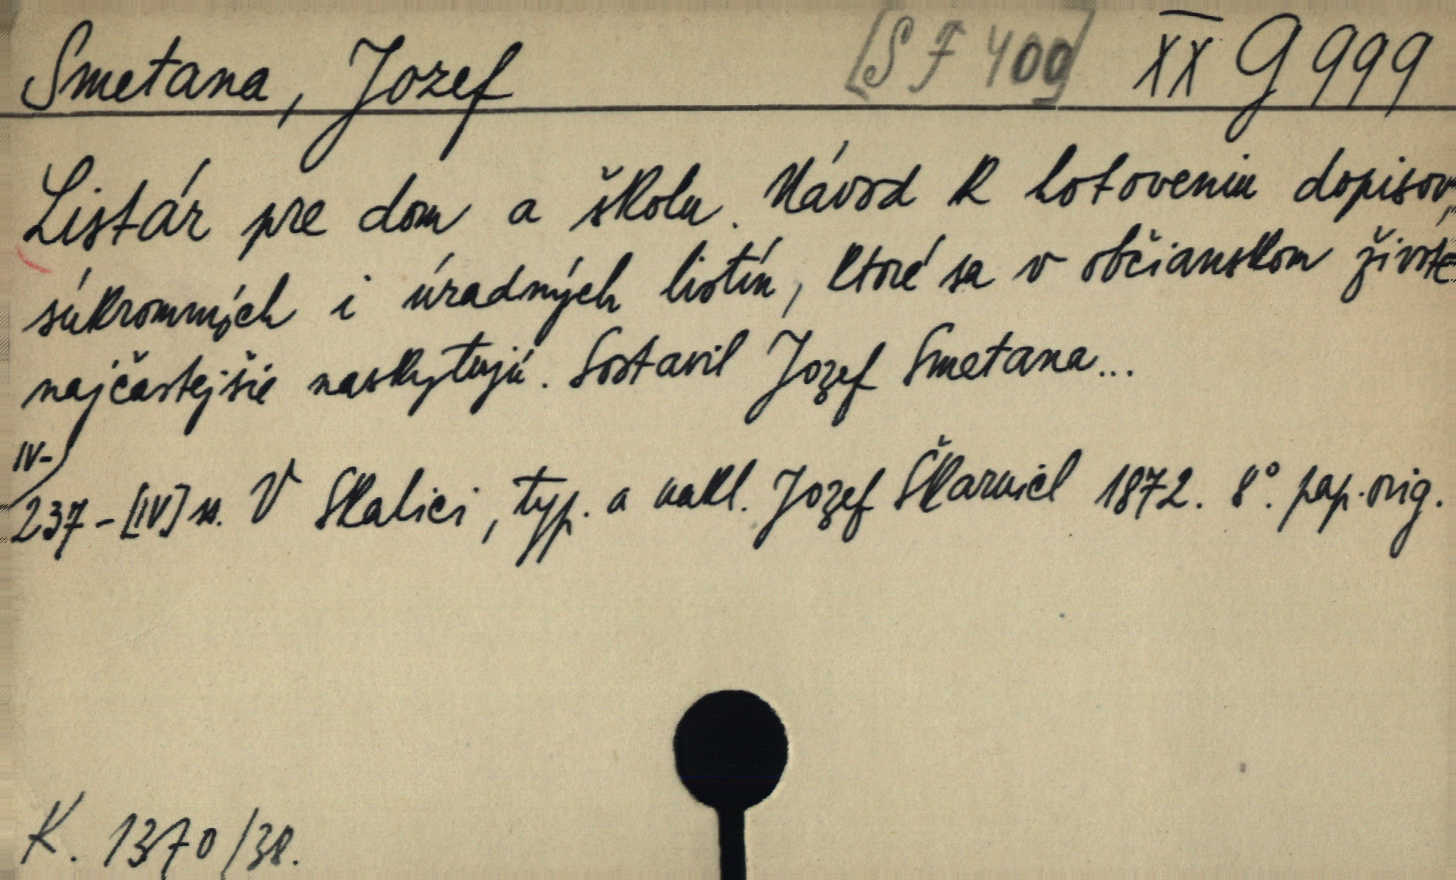 Smetana, Jozef [S F 400] XX G 999
Listár pre dom a školu. Návod k hotoveniu dopisov,
súkromných i úradných listín, ktoré sa v občianskom živote
najčastejšie naskytujú. Sostavil Jozef Smetana...
IV-
237-[IV] s. V Skalici, typ. a nakl. Jozef Škarnicl 1872. 8°. pap. orig.
K. 1370/38.